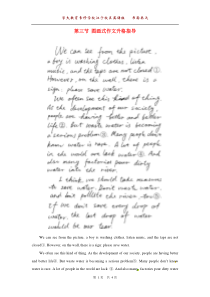 第三节 图画式作文升格指导
We can see from the picture,
a boy is washing clothes, listen
music, and the taps are not closed①.
However, on the wall, there is a
sign, please save water.
We often see this kind of thing.
As the development of our society,
people are having better and
better life②. But water is becoming
a serious problem③. Many people don't
know water is rare. A lot of people
in the world are lack water④. And
dar many factories pour dirty
water into the river.
I think, we should take measures
to save water. Don't waste water.
and not pollute the river too⑤
If we don't save every drop of
water, the last drop of water
would be our tear.
We can see from the picture, a boy is washing clothes, listen music, and the taps are not
closed①. However, on the wall there is a sign: please save water.
We often see this kind of thing. As the development of our society, people are having better
and better life②. But water is becoming a serious problem③. Many people don't know
water is rare. A lot of people in the world are lack④. And many factories pour dirty water